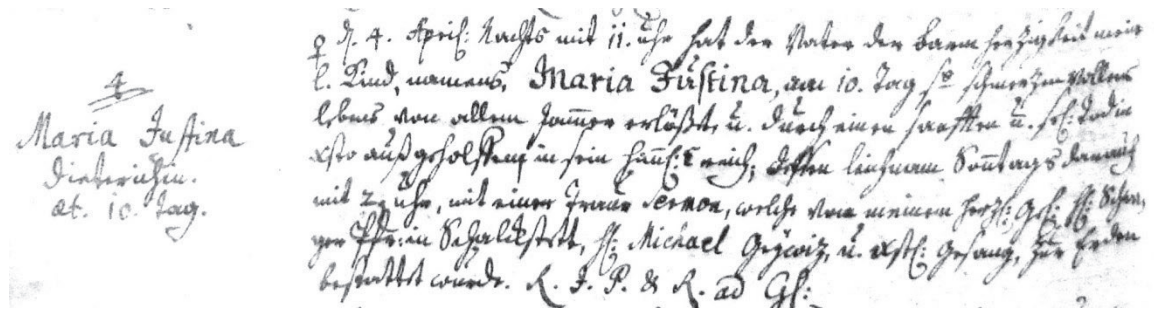 Maria Justina
Dieterichin.
æt. 10. Tag.
♀ d. 4. April: Nachts mit 11. Uhr hat der Vater der Barmherzigkeit mein
l. Kind, namens, Maria Justina, am 10. Tag schmerzenvollen
lebens von allem Jammer erlößt, u. durch einen sanfften u. seel: Tod in
Xsto außgeholffen in sein Himl: reich, deßen leichnam Sonntags darauf
mit 2. Uhr, mit einer Traur Sermon, welche von meinem herzl: Gel: H: Schwa-
ger Pfr: in Schalkstett, H: Michael Geÿwiz, u. Xstl: Gesang, zur Erden
bestattet wurde. R. I. P. & R. ad Gl: